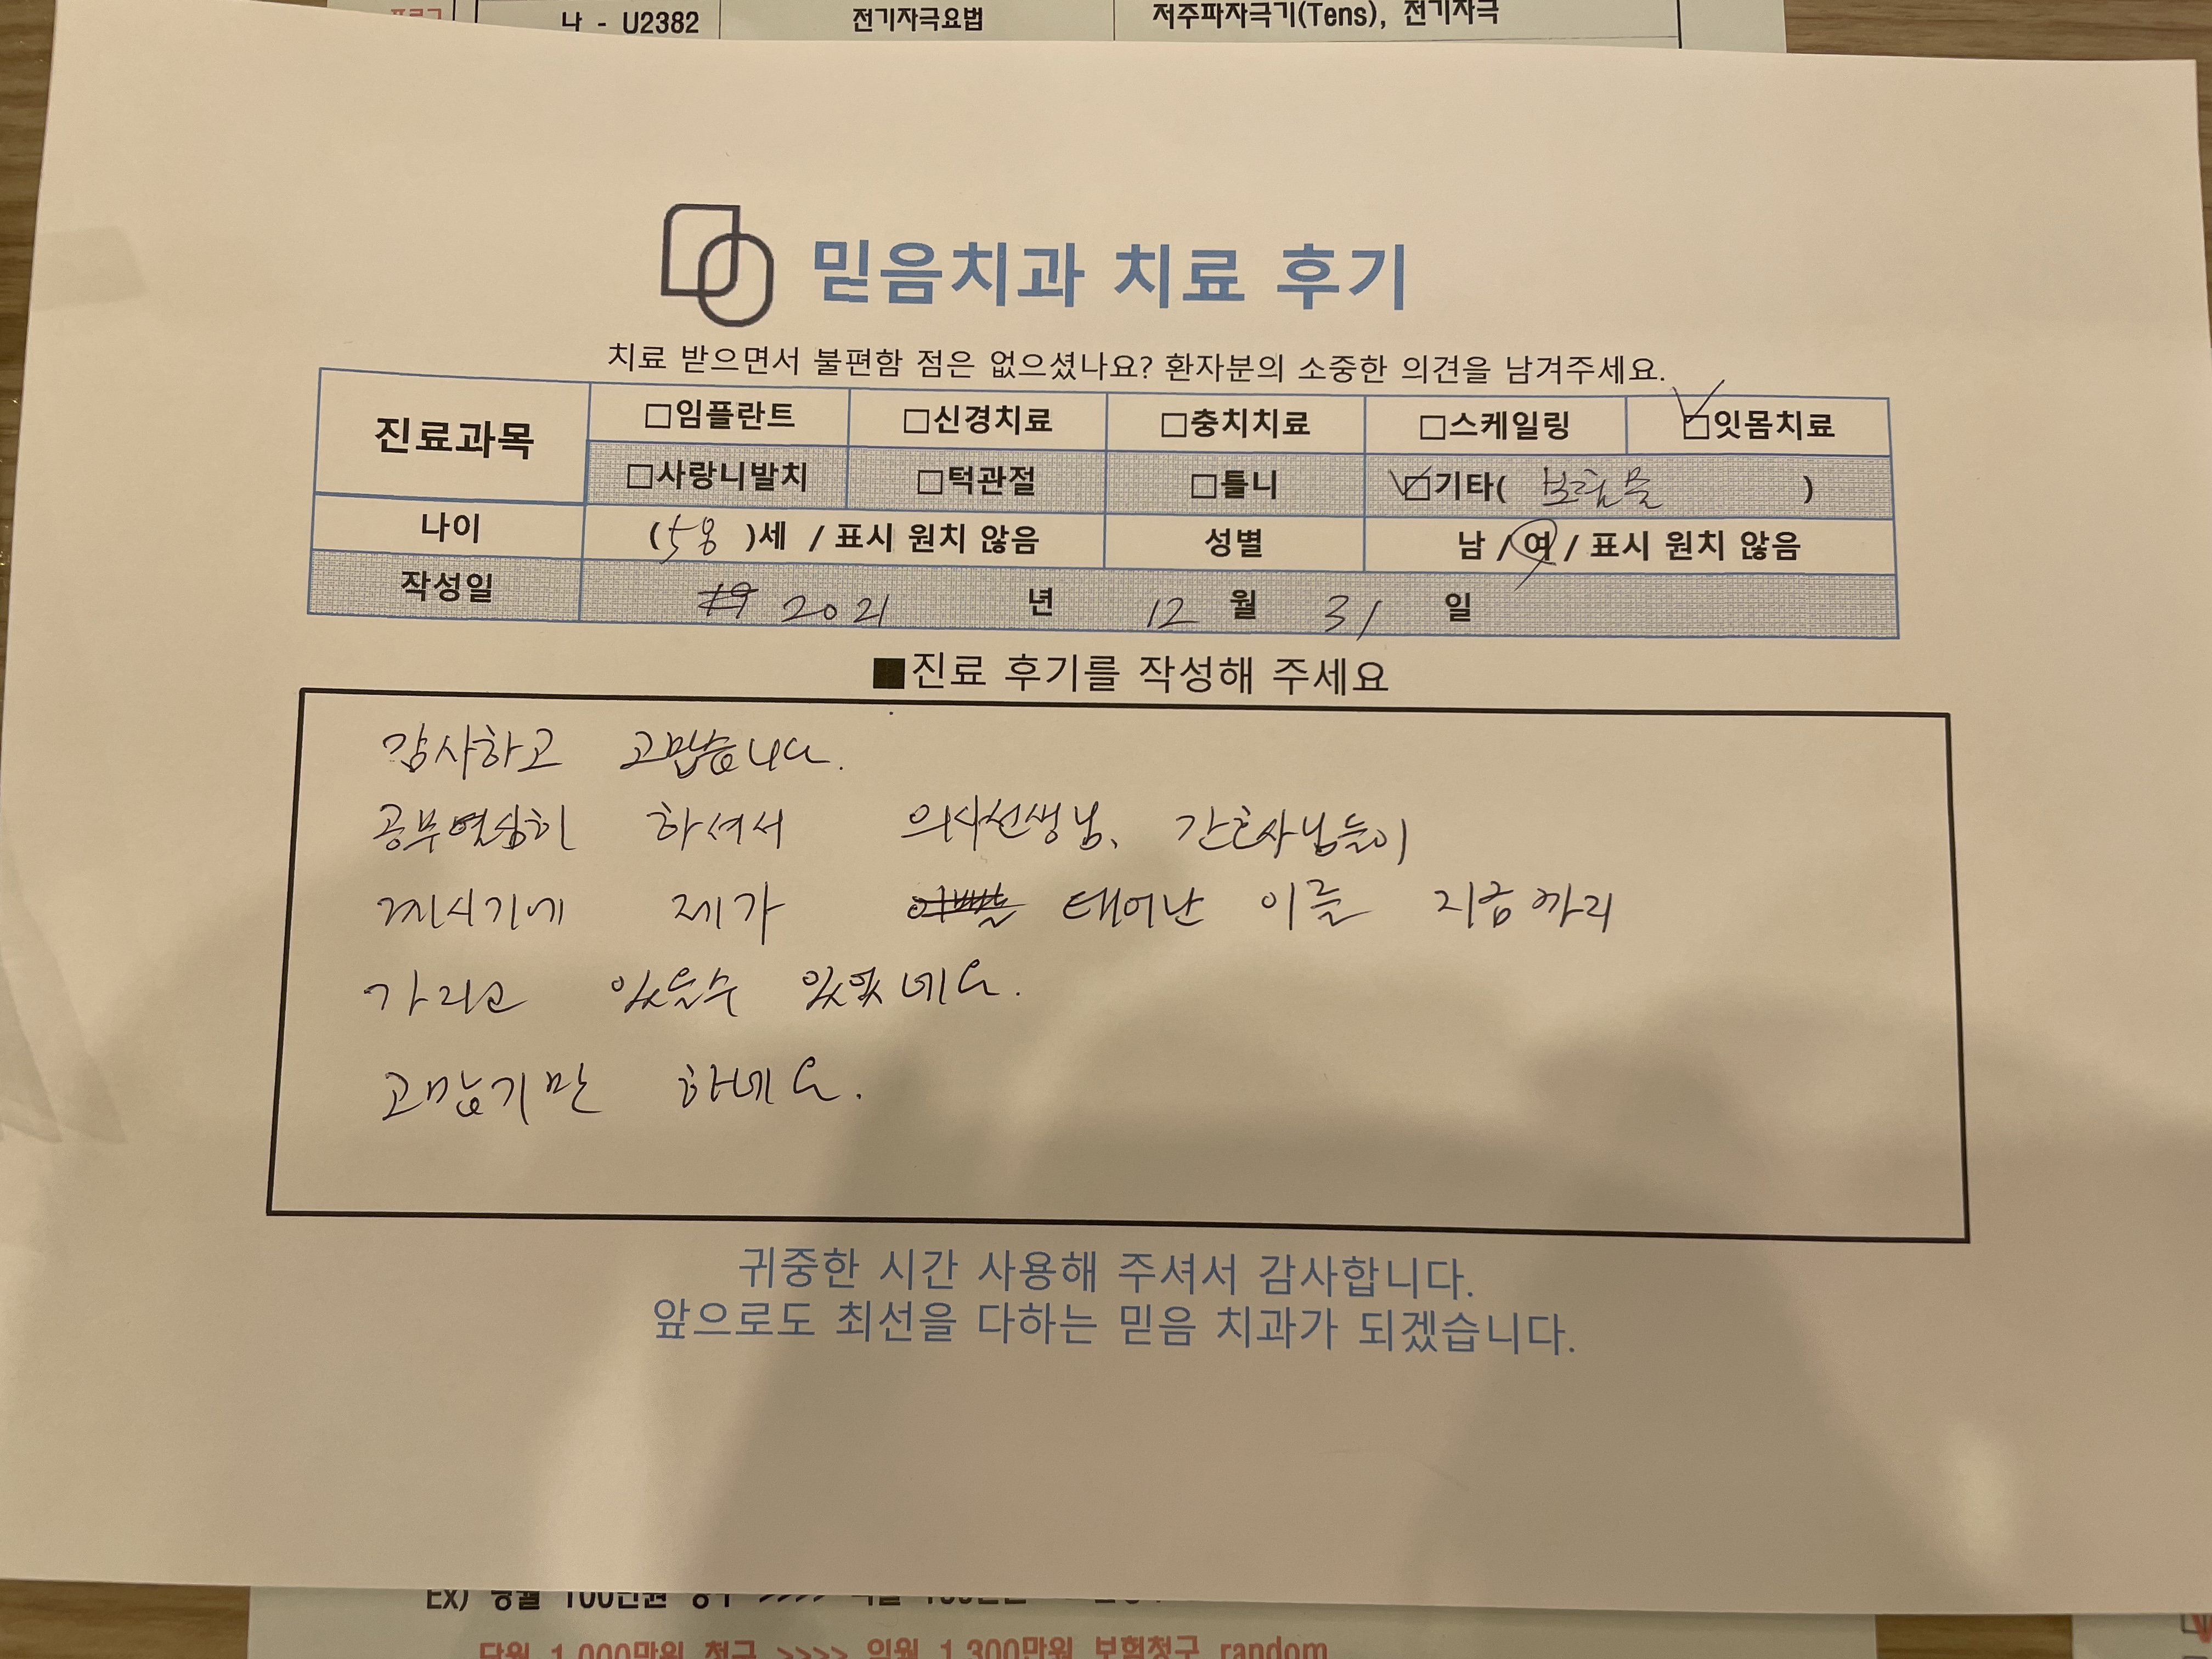 나 - U2382 전기자극요법 저주파자극기(Tens), 전기자극
믿음치과 치료 후기
치료 받으면서 불편함 점은 없으셨나요? 환자분의 소중한 의견을 남겨주세요.
진료과목 □임플란트 □신경치료 □충치치료 □스케일링 □잇몸치료
□사랑니발치 □턱관절 □틀니 □기타( 보철물 )
나이 (58)세 / 표시 원치 않음 성별 남 / 여 / 표시 원치 않음
작성일 2021 년 12 월 31 일
■진료 후기를 작성해 주세요
감사하고 고맙습니다.
공부열심히 하셔서 의사선생님, 간호사님들이
계시기에 제가 태어난 이를 지금까지
가지고 있을수 있었네요.
고맙기만 하네요.
귀중한 시간 사용해 주셔서 감사합니다.
앞으로도 최선을 다하는 믿음 치과가 되겠습니다.
Ex) 당월 100만원 청구 >>>>
당월 1,000만원 청구 >>>> 익월 1,300만원 보험청구 random